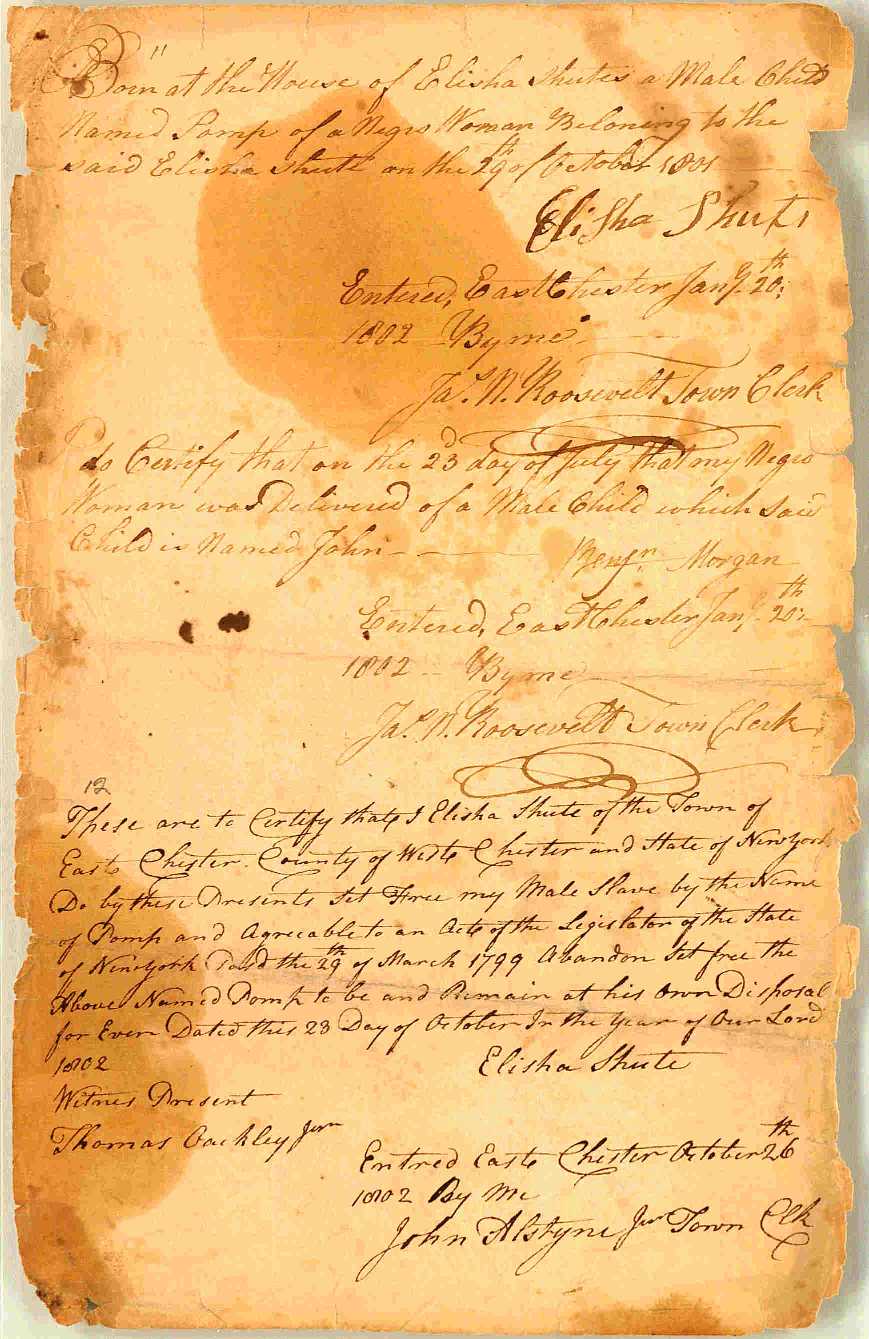 Born at the House of Elisha Shutes a Male Child
Named Pomp of a Negro Woman Beloning to the
said Elisha Shute on the 29th of October 1801
Elisha Shute
Entered, EastChester Jany. 20th;
1802 By me
Jas. N. Roosevelt Town Clerk
I do Certify that on the 23d day of July that my Negro
Woman was Delivered of a Male Child which said
Child is Named John
Benjn. Morgan
Entered, EastChester Jany. 20th;
1802 By me
Jas. N. Roosevelt Town Clerk
12
These are to Certify that I Elisha Shute of the Town of
East Chester County of West Chester and State of New York
Do by these Presents Set Free my Male Slave by the Name
of Pomp and Agreeable to an Act of the Legislator of the State
of New York Pasd the 29th of March 1799 Abandon Set free the
Above Named Pomp to be and Remain at his Own Disposal
for Ever Dated this 23 Day of October In the Year of Our Lord
1802
Elisha Shute
Witnes Present
Thomas Oackley Jur
Entred East Chester October 26th
1802 By Me
John Alstyne Jur Town Clk